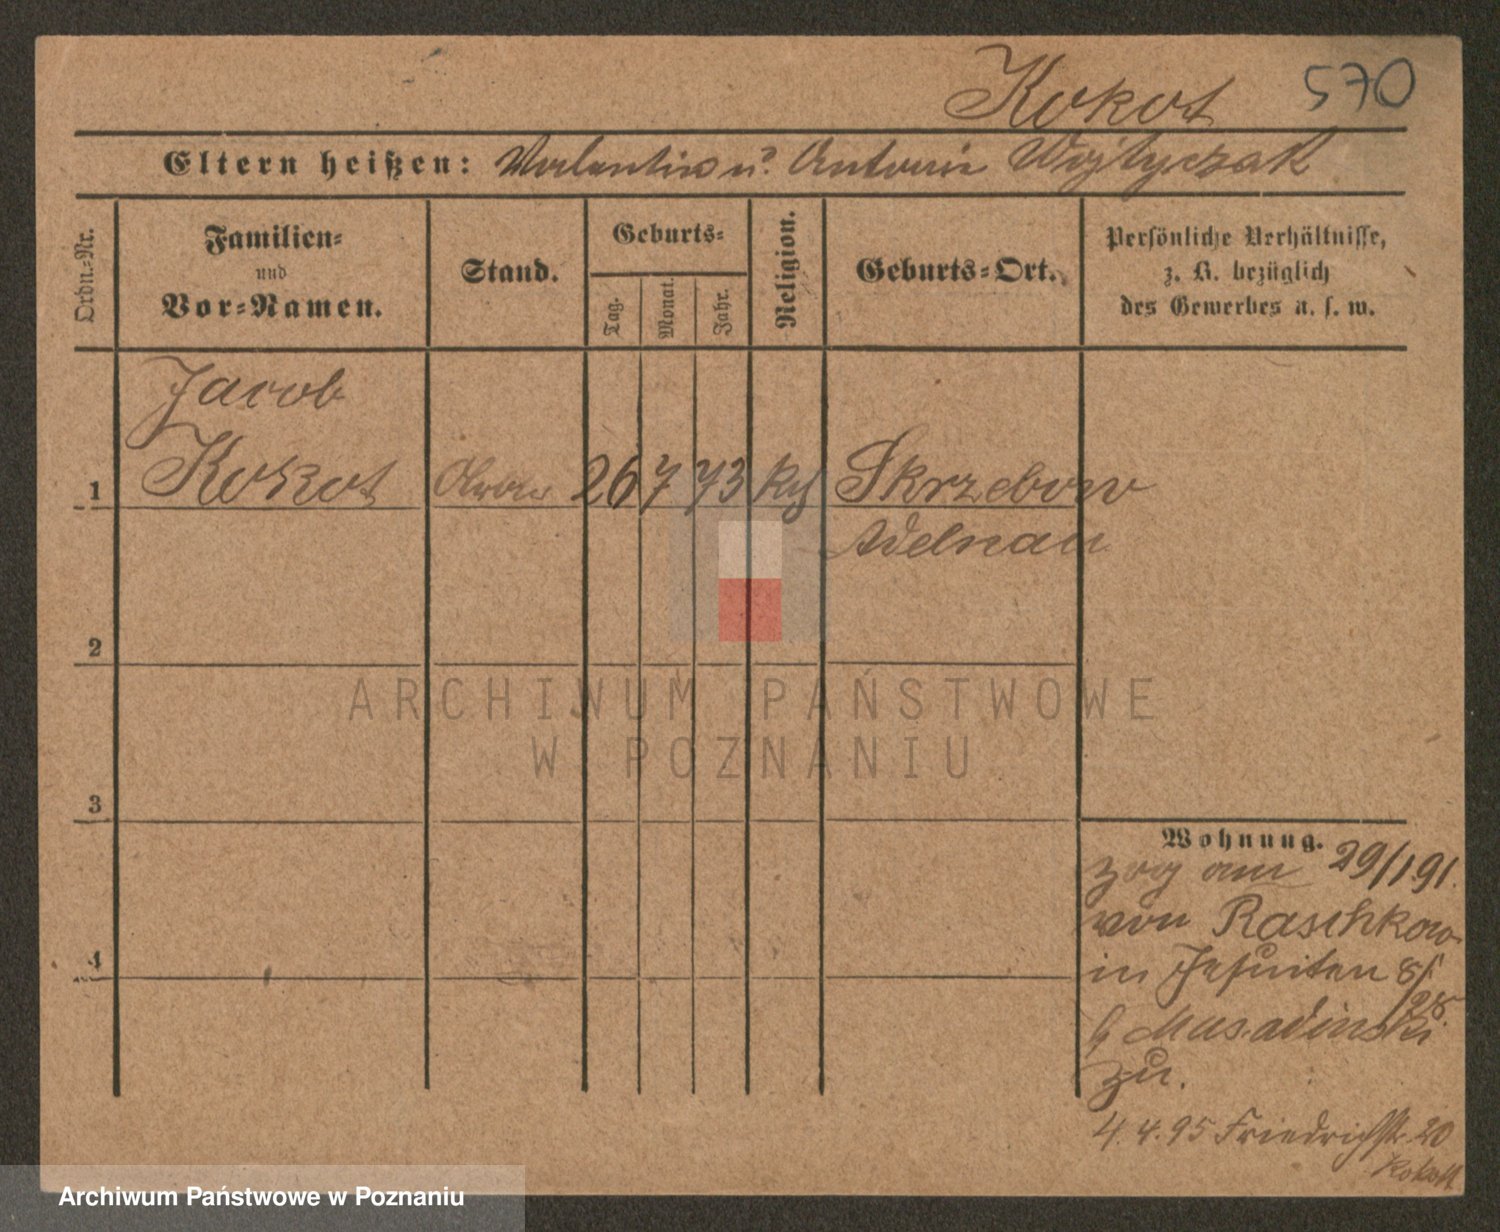 Kokot 570
Eltern heißen: Valentin u. Antonie Wojtyczak
Ordn.-Nr.
Familien-
und
Vor-Namen.
Stand.
Geburts-
Tag.
Monat.
Jahr.
Religion.
Geburts-Ort.
Persönliche Verhältnisse,
z. B. bezüglich
des Gewerbes u. s. w.
Jacob
1 Kokot 26 7 73 kth Skrzebow
Adelnau
2
3
4
Wohnung.
zog am 29/1 91.
von Raschkow
in Jesuiten 8/
b
zu.
4. 4. 95 Friedrichstr. 20
ARCHIWUM PAŃSTWOWE
W POZNANIU
Archiwum Państwowe w Poznaniu